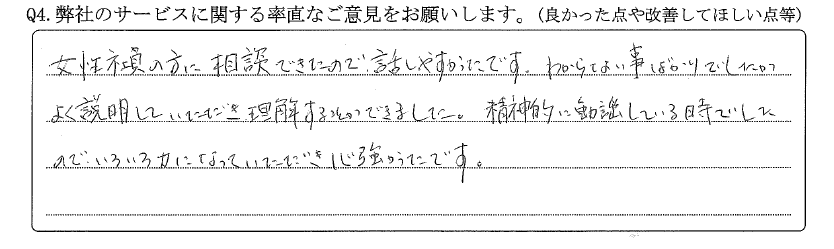 Q4. 弊社のサービスに関する率直なご意見をお願いします。(良かった点や改善してほしい点等)
女性社員の方に相談できたので話しやすかったです。わからない事ばかりでしたが
よく説明していただき理解する事ができました。精神的に動謡している時でした
のでいろいろ力になっていただき心強かったです。